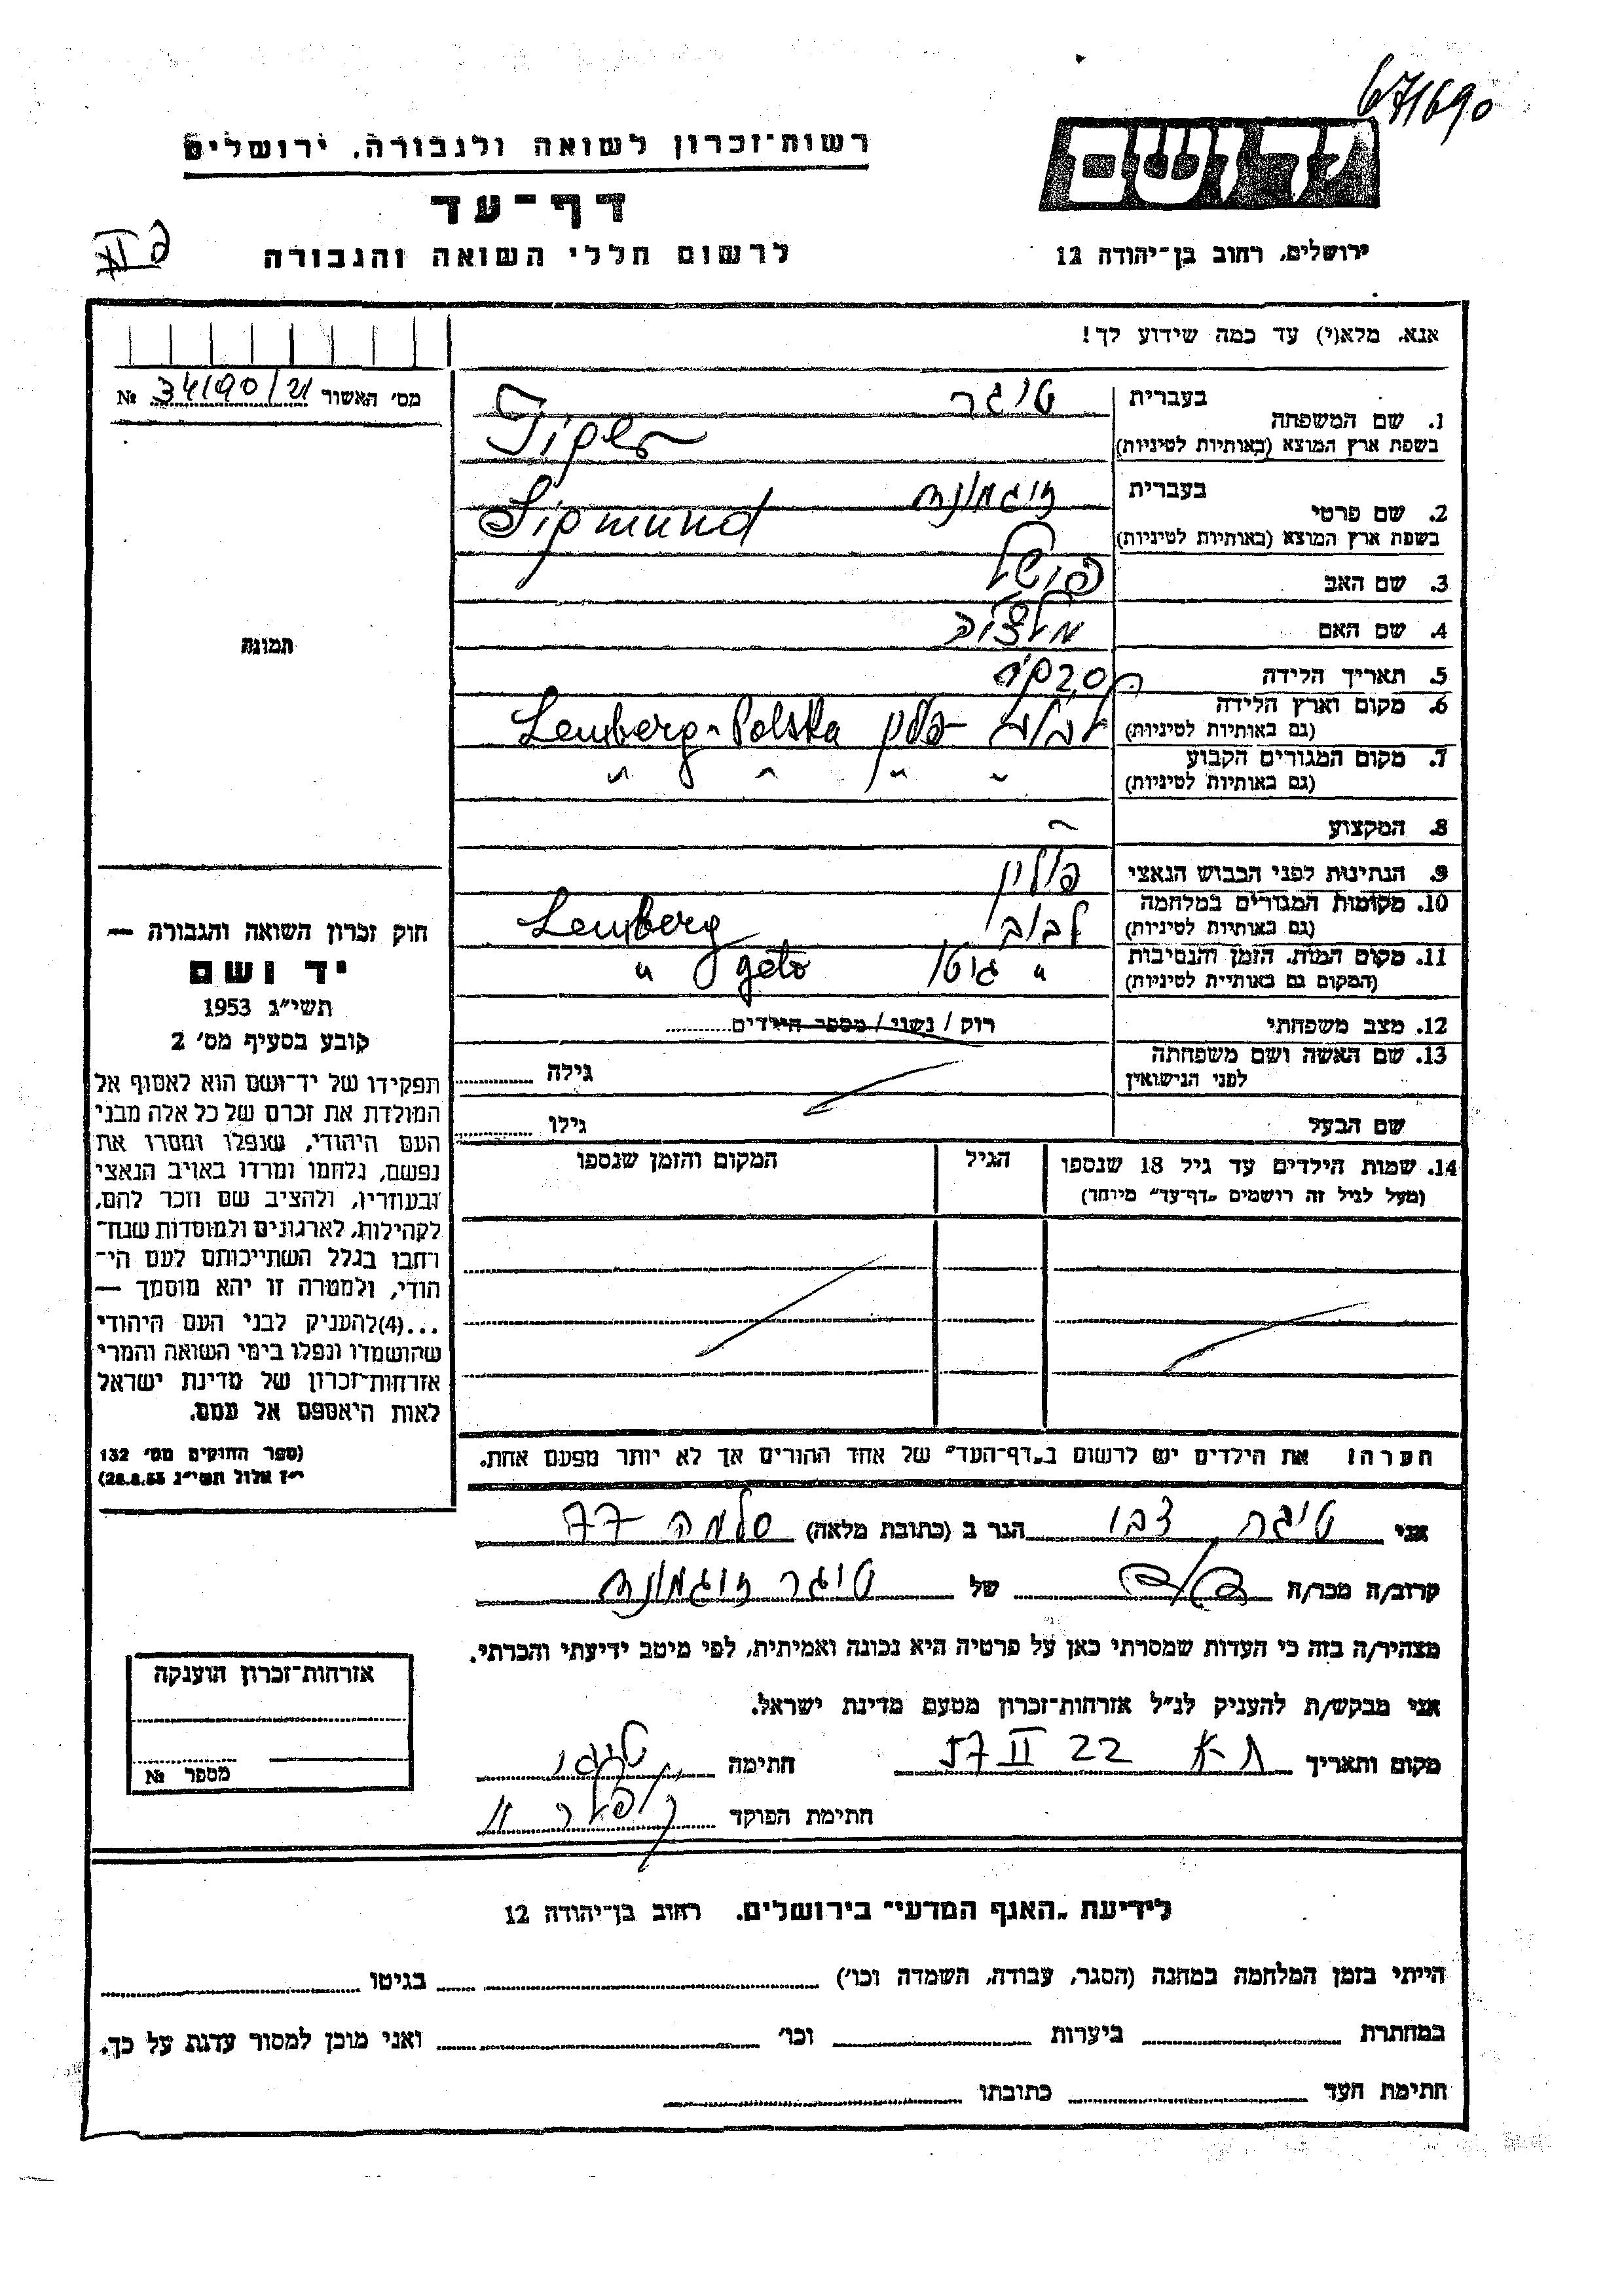 671690
רשות־זכרון לשואה ולגבורה, ירושלים
דף־עד
לרשום חללי השואה והגבורה
יד ושם
ירושלים, רחוב בן־יהודה 12
אנא, מלא(י) עד כמה שידוע לך!
מס׳ האשור 34190/21 №
תמונה
1. שם המשפחה בעברית טיגר
בשפת ארץ המוצא (באותיות לטיניות) Tiger
2. שם פרטי בעברית זיגמונד
בשפת ארץ המוצא (באותיות לטיניות) Sigmund
3. שם האב
4. שם האם
5. תאריך הלידה
6. מקום וארץ הלידה
(גם באותיות לטיניות) Lemberg - Polska
7. מקום המגורים הקבוע
(גם באותיות לטיניות) " " " "
8. המקצוע –
9. הנתינות לפני הכבוש הנאצי פולין
10. מקומות המגורים במלחמה
(גם באותיות לטיניות) לבוב Lemberg
11. מקום המות, הזמן והנסיבות
(המקום גם באותיית לטיניות) " גיטו geto "
12. מצב משפחתי רוק / נשוי / מספר הילדים
13. שם האשה ושם משפחתה
לפני הנישואין גילה
שם הבעל גילו
14. שמות הילדים עד גיל 18 שנספו הגיל המקום והזמן שנספו
(מעל לגיל זה רושמים „דף־עד״ מיוחד)
הערה! את הילדים יש לרשום ב„דף־העד״ של אחד ההורים אך לא יותר מפעם אחת.
חוק זכרון השואה והגבורה —
יד ושם
תשי״ג 1953
קובע בסעיף מס׳ 2
תפקידו של יד־ושם הוא לאסוף אל
המולדת את זכרם של כל אלה מבני
העם היהודי, שנפלו ומסרו את
נפשם, נלחמו ומרדו באויב הנאצי
ובעוזריו, ולהציב שם וזכר להם,
לקהילות, לארגונים ולמוסדות שנח־
רחבו בגלל השתייכותם לעם הי־
הודי, ולמטרה זו יהא מוסמך —
...(4)להעניק לבני העם היהודי
שהושמדו ונפלו בימי השואה והמרי
אזרחות־זכרון של מדינת ישראל
לאות היאספם אל עמם.
(ספר החוקים מס׳ 132
י״ז אלול תשי״ג 28.8.53)
אני טיגר צבי הגר ב (כתובת מלאה) סלמה 77
קרוב/ה מכר/ה של טיגר זיגמונד
מצהיר/ה בזה כי העדות שמסרתי כאן על פרטיה היא נכונה ואמיתית, לפי מיטב ידיעתי והכרתי.
אני מבקש/ת להעניק לנ״ל אזרחות־זכרון מטעם מדינת ישראל.
מקום ותאריך ת-א 22 II 57 חתימה
חתימת הפוקד
אזרחות־זכרון הוענקה
מספר №
לידיעת „האגף המדעי״ בירושלים, רחוב בן־יהודה 12
הייתי בזמן המלחמה במחנה (הסגר, עבודה, השמדה וכו׳) בגיטו
במחתרת ביערות וכו׳ ואני מוכן למסור עדות על כך.
חתימת העד כתובתו